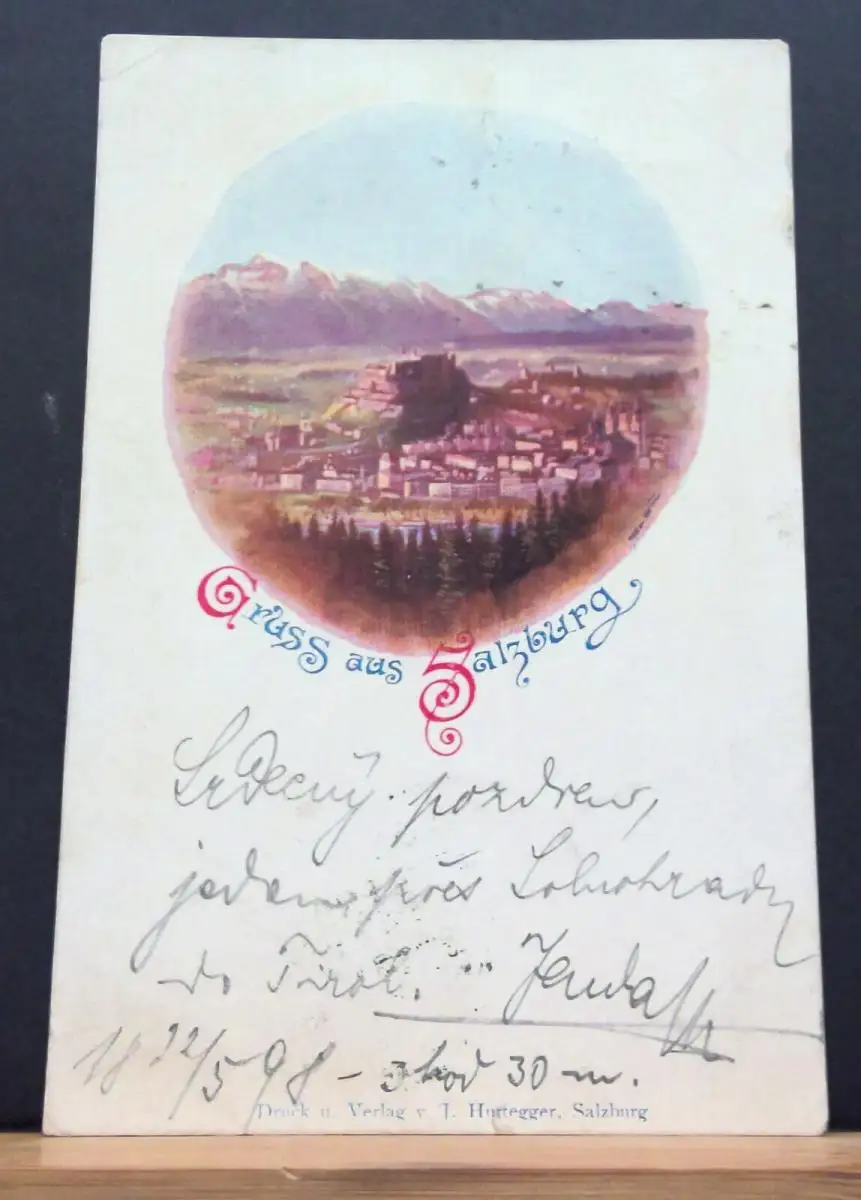 Gruss aus Salzburg
Srdečný pozdrav,
jedem přes Solnohrady
do Tirol. Jenda
18 12/5 98 – 3 hod 30 m.
Druck u. Verlag v. J. Huttegger, Salzburg